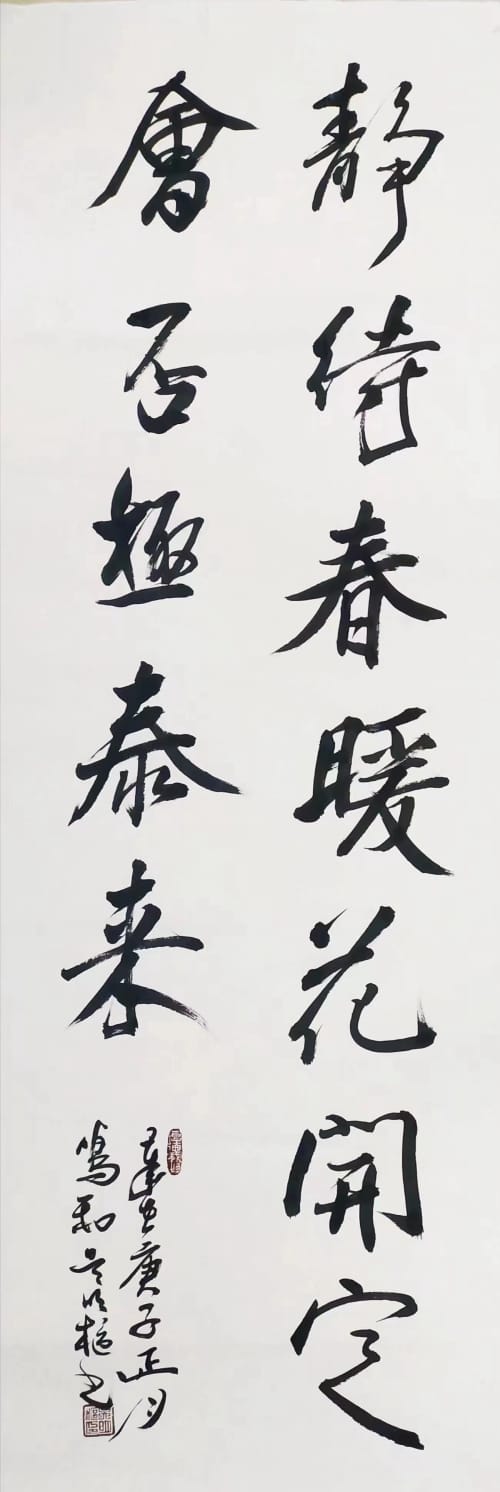 靜待春暖花開定
會否極泰來
庚子正月